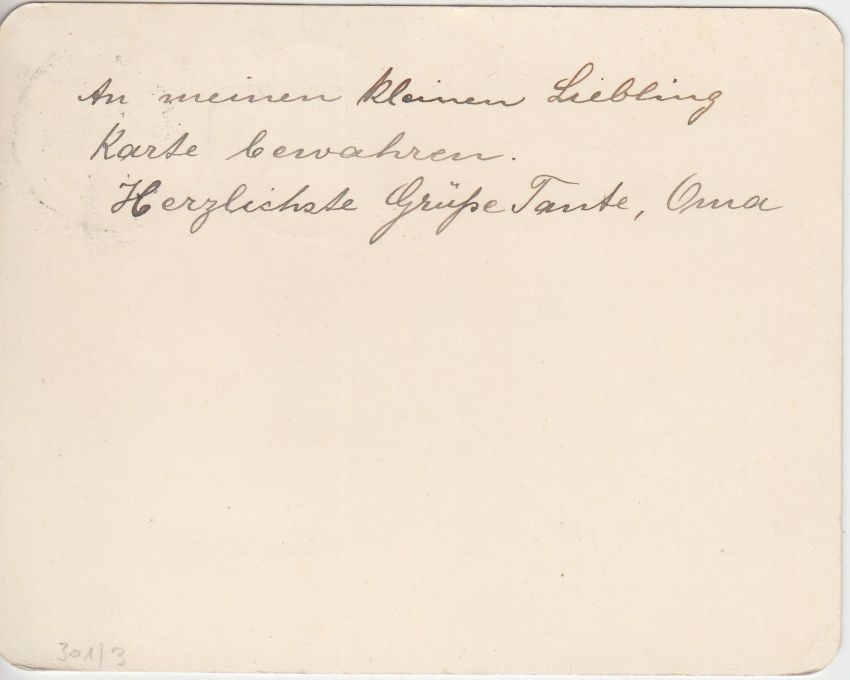 An meinen kleinen Liebling
Karte bewahren.
Herzlichste Grüße Tante, Oma
301/3